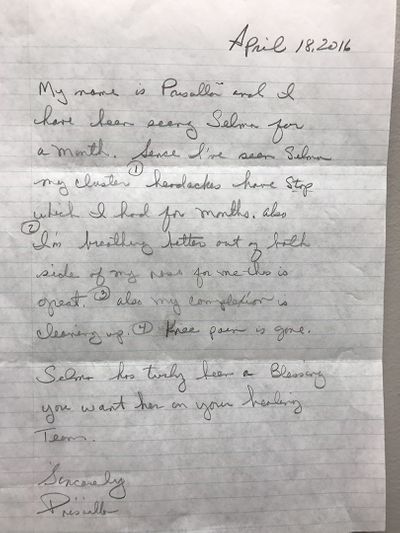 April 18, 2016
My name is Prisilla and I
have been seeing Selma for
a month. Sense I've seen Selma
my cluster ① headaches have stop
which I had for months. also
② I'm breathing better out of both
side of my nose for me this is
great. ③ also my complexion is
clearing up. ④ Knee pain is gone.
Selma has truly been a Blessing
you want her on your healing
Team.
Sincerely
Priscilla